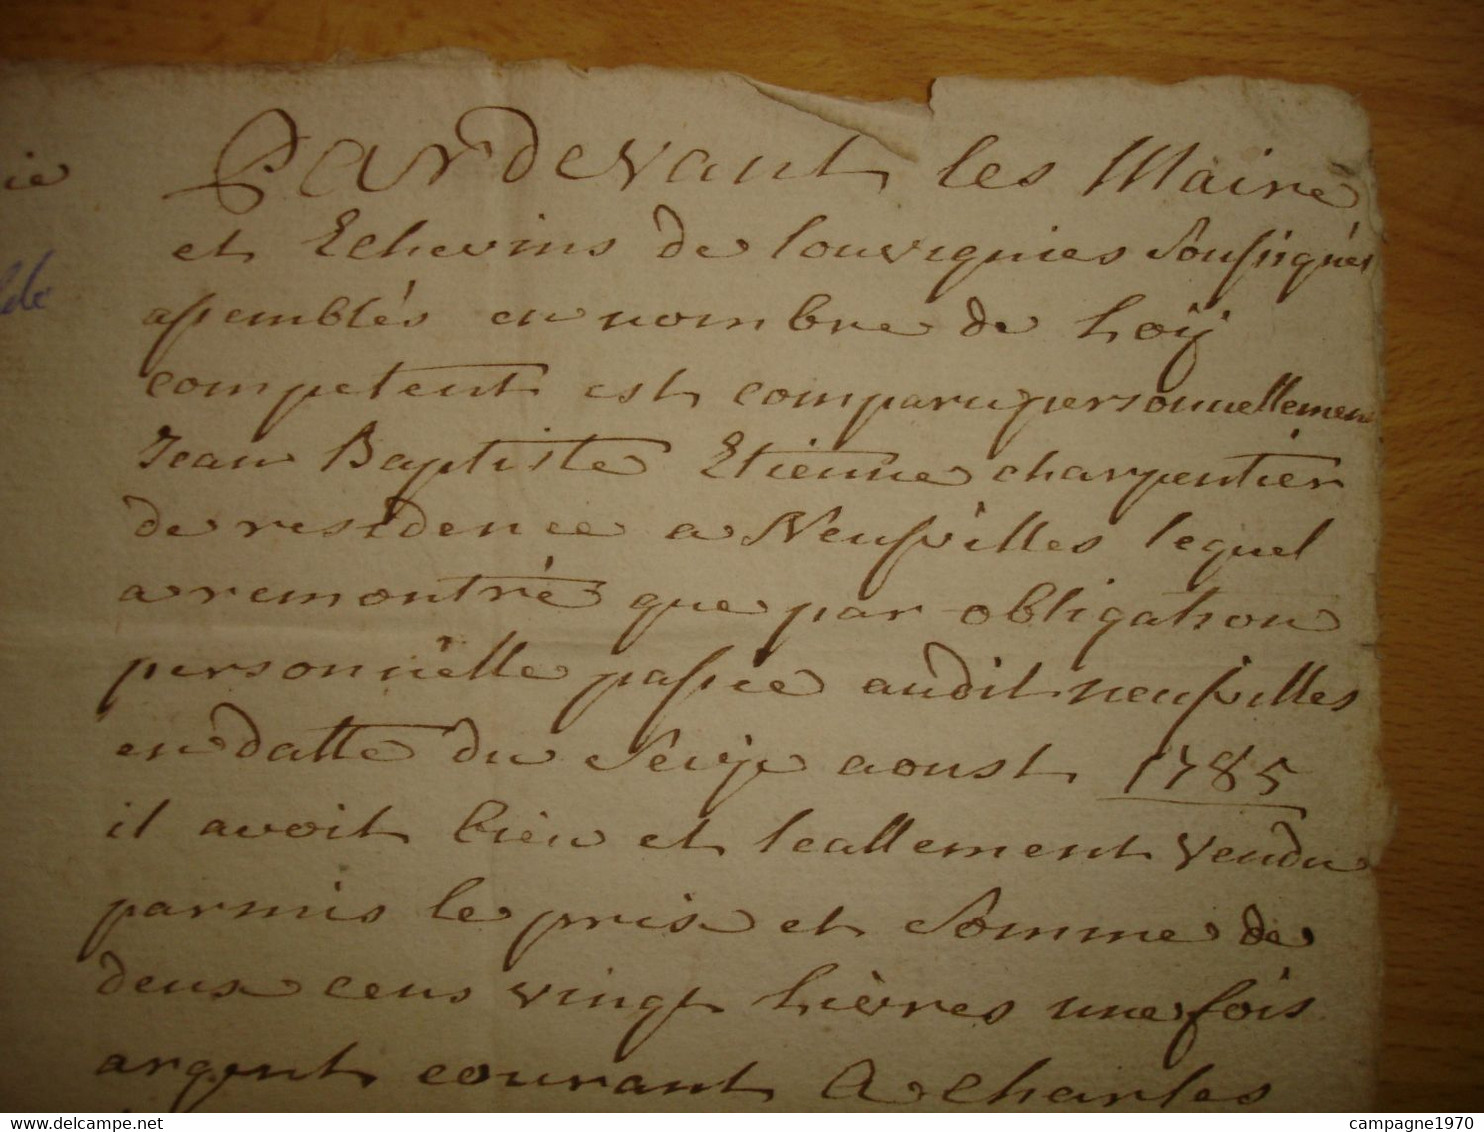 Pardevant les Maire
et Echevins de Louvignies Soussignés
assemblés en nombre de Loÿ
competent est comparu personnellemen
Jean Baptiste Etienne charpentier
de residence a Neufvilles lequel
a remontré que par obligation
personnëlle passée audit neufvilles
en datte du Seize aoust 1785
il avoit bien et leallement vendu
parmis le prix et Somme de
deux cens vingt lievres une fois
argent courant A Charles
campagne1970